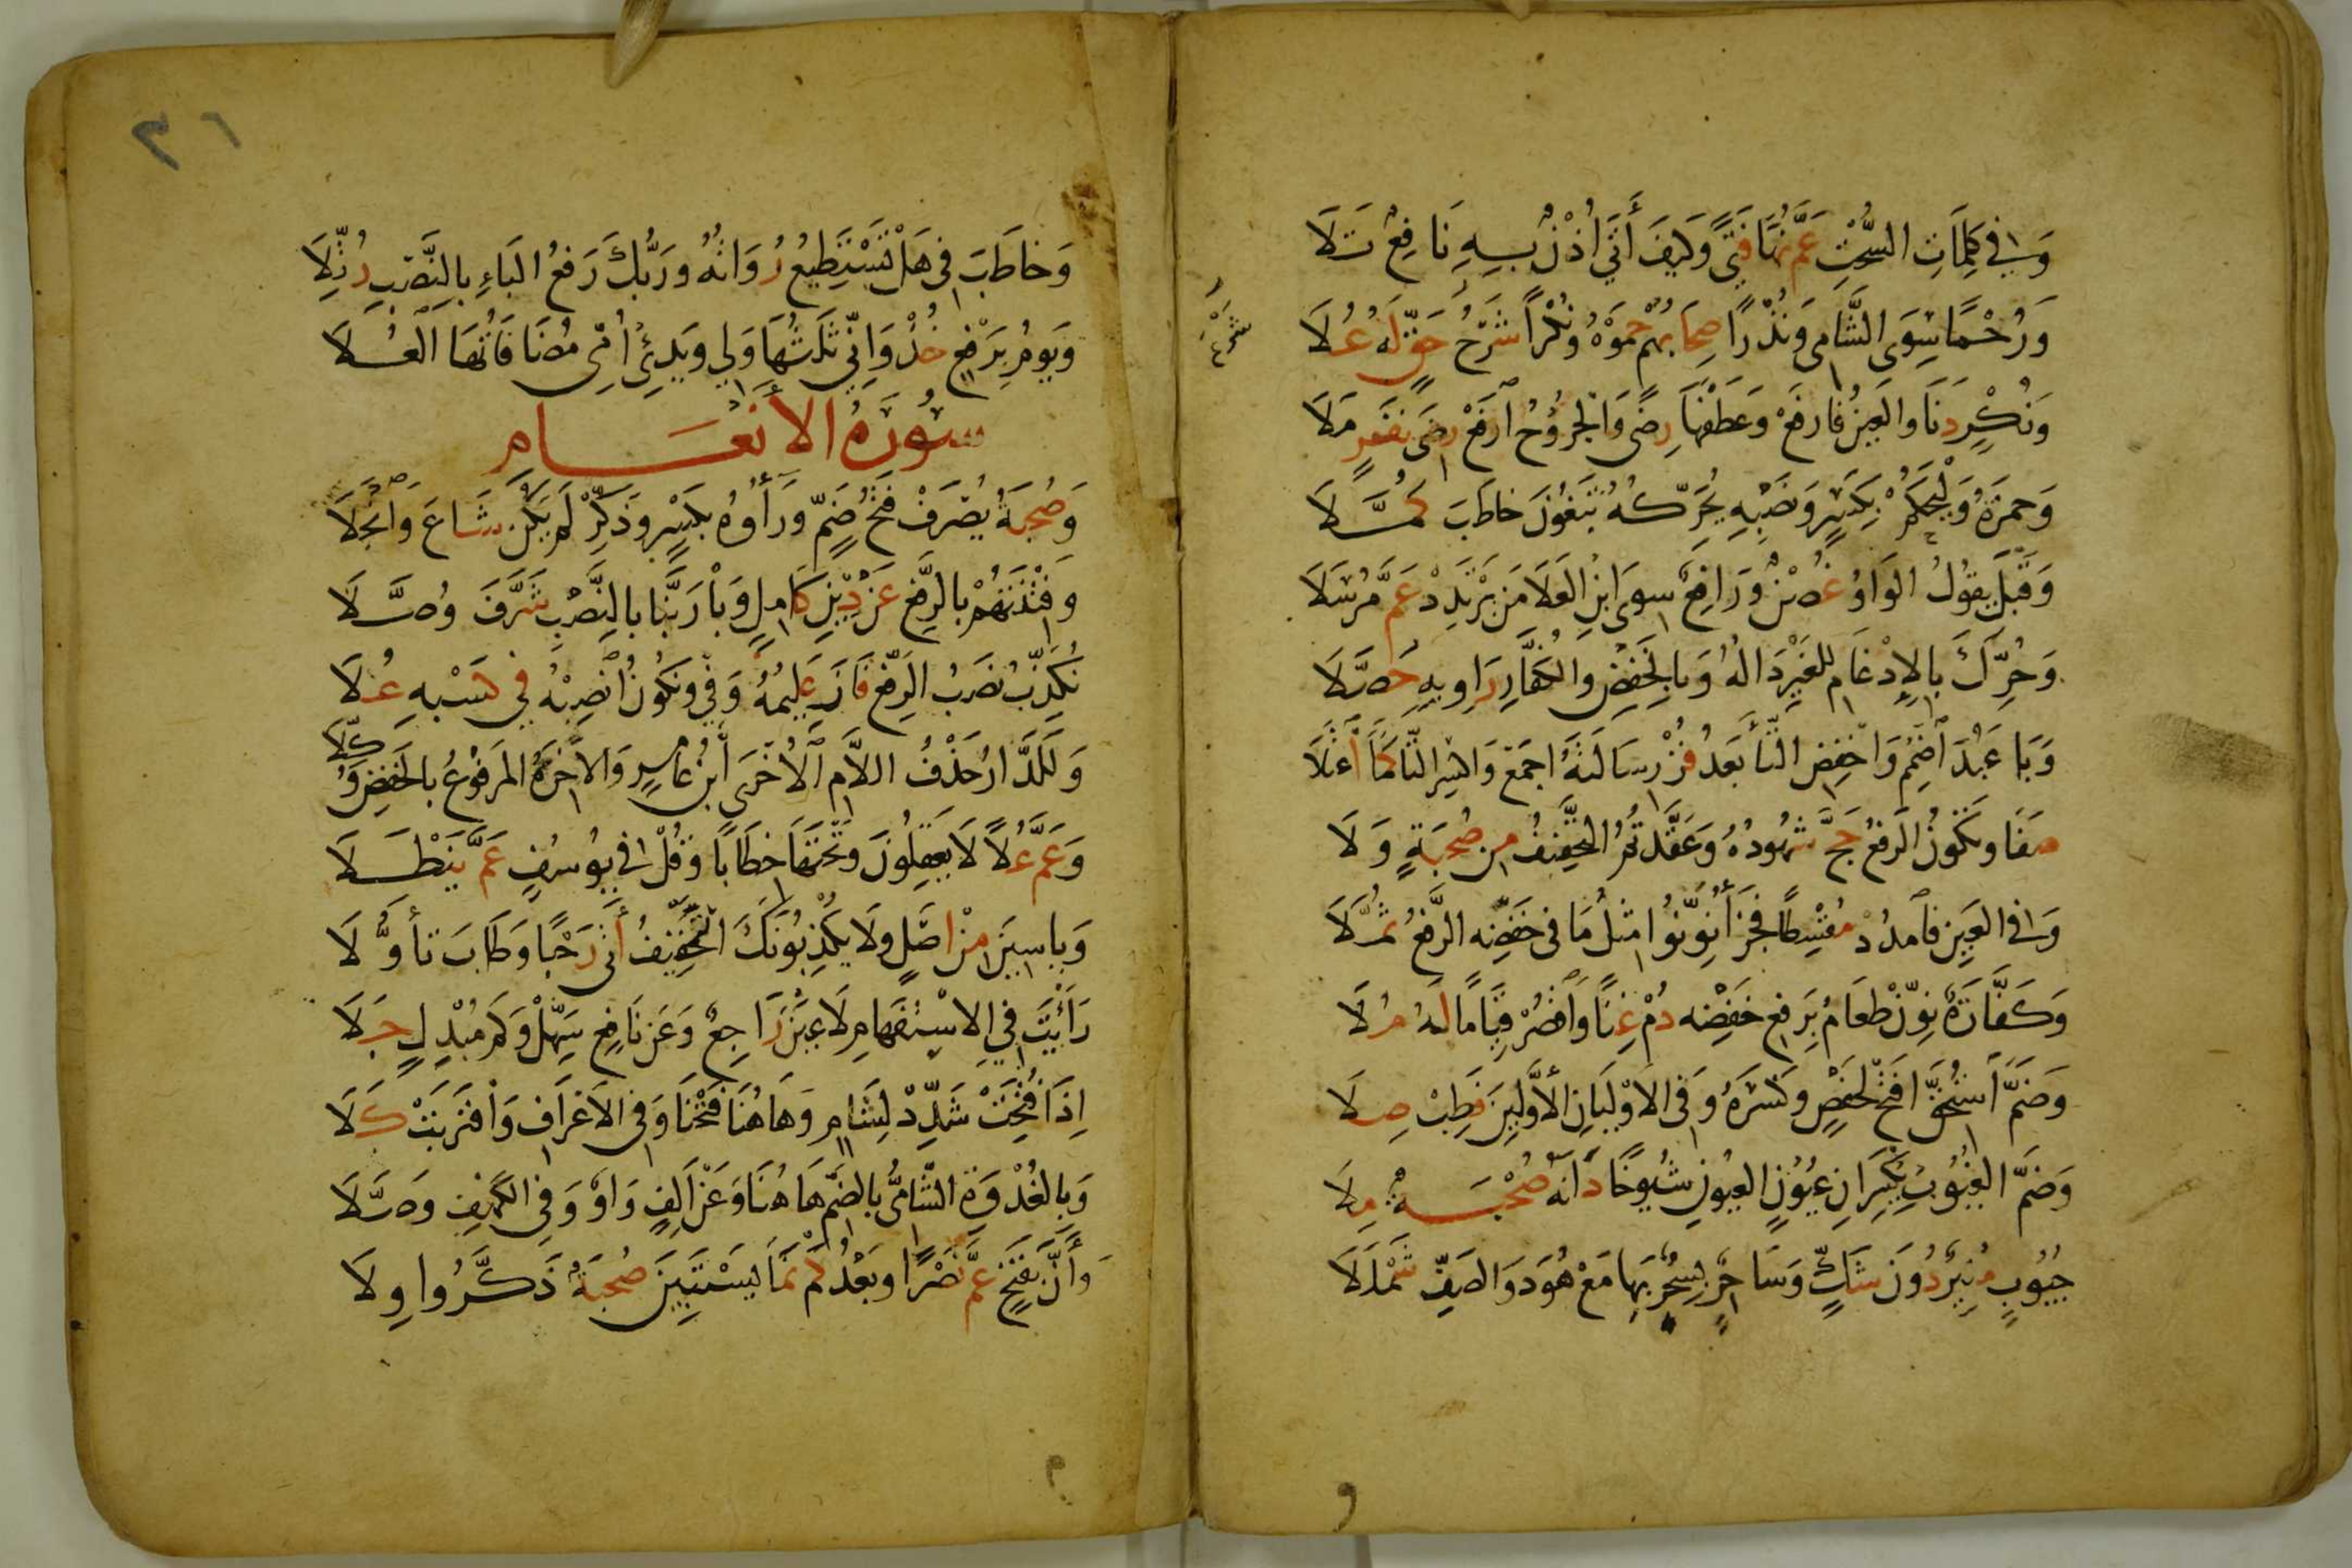 وَفِي كَلِمَاتِ السُّحْتِ عَمَّ نُهًى فَتًى وَكَيْفَ أَتَى أُذْنٌ بِهِ نَافِعٌ تَلَا
وَرُحْمًا سِوَى الشَّامِي وَنُذْرًا صِحَابُهُمْ حَمَوْهُ وَنُكْرًا شَرْعُ حَقٍّ لَهُ عُلَا
شَرْعُ
وَنُكْرٍ دَنَا وَالعَيْنُ فَارْفَعْ وَعَطْفَهَا رِضًى وَالْجُرُوحُ ارْفَعْ رِضَى نَفَرٍ مَلَا
وَحَمْزَةُ وَلْيَحْكُمْ بِكَسْرٍ وَنَصْبِهِ يُحَرِّكُهُ تَبْغُونَ خَاطَبَ كُمَّلَا
وَقَبْلَ يَقُولُ الْوَاوُ غُصْنٌ وَرَافِعٌ سِوَى ابْنِ العَلَا مَنْ يَرْتَدِدْ عَمَّ مُرْسَلَا
وَحُرِّكَ بِالإِدْغَامِ لِلغَيْرِ دَالُهُ وَبِالْخَفْضِ وَالْكُفَّارَ رَاوِيهِ حَصَّلَا
وَبَا عَبَدَ اضْمُمْ وَاخْفِضِ التَّا بَعْدُ فُزْ رِسَالَتَهُ اجْمَعْ وَاكْسِرِ التَّا كَمَا اعْتَلَا
صَفَا وَتَكُونُ الرَّفْعُ حَجَّ شُهُودُهُ وَعَقَّدْتُمُ التَّخْفِيفُ مِنْ صُحْبَةٍ وَلَا
وَفِي العَيْنِ فَامْدُدْ مُقْسِطًا فَجَزَاءُ نَوِّنُوا مِثْلُ مَا فِي خَفْضِهِ الرَّفْعُ ثُمَّلَا
وَكَفَّارَةٌ نَوِّنْ طَعَامُ بِرَفْعِ خَفْضِهِ دُمْ غِنًا وَاقْصُرْ قِيَامًا لَهُ مُلَا
وَضَمَّ اسْتُحِقَّ افْتَحْ لِحَفْصٍ وَكَسْرَهُ وَفِي الاَوْلَيَانِ الأَوَّلِينَ فَطِبْ صِلَا
وَضَمَّ الغُيُوبِ يَكْسِرَانِ عُيُونٍ العُيُونِ شُيُوخًا دَانَهُ صُحْبَةٌ مِلَا
جُيُوبِ مُنِيرٌ دُونَ شَكٍّ وَسَاحِرٌ بِسِحْرٌ بِهَا مَعْ هُودَ وَالصَّفِّ شَمْلَلَا
و
٣٦
وَخَاطَبَ فِي هَلْ تَسْتَطِيعُ رُوَاتُهُ وَرَبُّكَ رَفْعُ الْبَاءِ بِالنَّصْبِ رُتِّلَا
وَيَوْمُ بِرَفْعٍ خُذْ وَإِنِّي ثَلَاثُهَا وَلِي وَيَدِي أُمِّي مُضَافَاتُهَا الْعُلَا
سُورَةُ الأَنْعَامِ
وَصُحْبَةُ يُصْرَفْ فَتْحُ ضَمٍّ وَرَاؤُهُ بِكَسْرٍ وَذَكِّرْ لَمْ يَكُنْ شَاعَ وَانْجَلَا
وَفِتْنَتُهُمْ بِالرَّفْعِ عَنْ دِينِ كَامِلٍ وَبَا رَبَّنَا بِالنَّصْبِ شَرَّفَ وُصَّلَا
نُكَذِّبُ نَصْبُ الرَّفْعِ فَازَ عَلِيمُهُ وَفِي وَنَكُونُ انْصِبْهُ فِي كَسْبِهِ عُلَا
وَلَلدَّارُ حَذْفُ اللَّامِ الاُخْرَى ابْنُ عَامِرٍ وَالآخِرَةُ الْمَرْفُوعُ بِالْخَفْضِ وُكِّلَا
وَعَمَّ عُلًا لَا يَعْقِلُونَ وَتَحْتَهَا خِطَابًا وَقُلْ فِي يُوسُفٍ عَمَّ نَيْطَلَا
وَيَاسِينَ مِنْ اصْلٍ وَلَا يُكْذِبُونَكَ الْخَفِيفُ أَتَى رَحْبًا وَطَابَ تَأَوُّلَا
رَأَيْتَ فِي الاِسْتِفْهَامِ لَا عَيْنَ رَاجِعٌ وَعَنْ نَافِعٍ سَهِّلْ وَكَمْ مُبْدِلٍ جَلَا
إِذَا فُتِحَتْ شَدِّدْ لِشَامٍ وَهَاهُنَا فَتَحْنَا وَفِي الأَعْرَافِ وَاقْتَرَبَتْ كَلَا
وَبِالغُدْوَةِ الشَّامِيُّ بِالضَّمِّ هَاهُنَا وَعَنْ أَلِفٍ وَاوٌ وَفِي الْكَهْفِ وَصَّلَا
وَأَنَّ بِفَتْحٍ عَمَّ نَصْرًا وَبَعْدُ كَمْ نَمَا يَسْتَبِينَ صُحْبَةٌ ذَكَّرُوا وِلَا
م